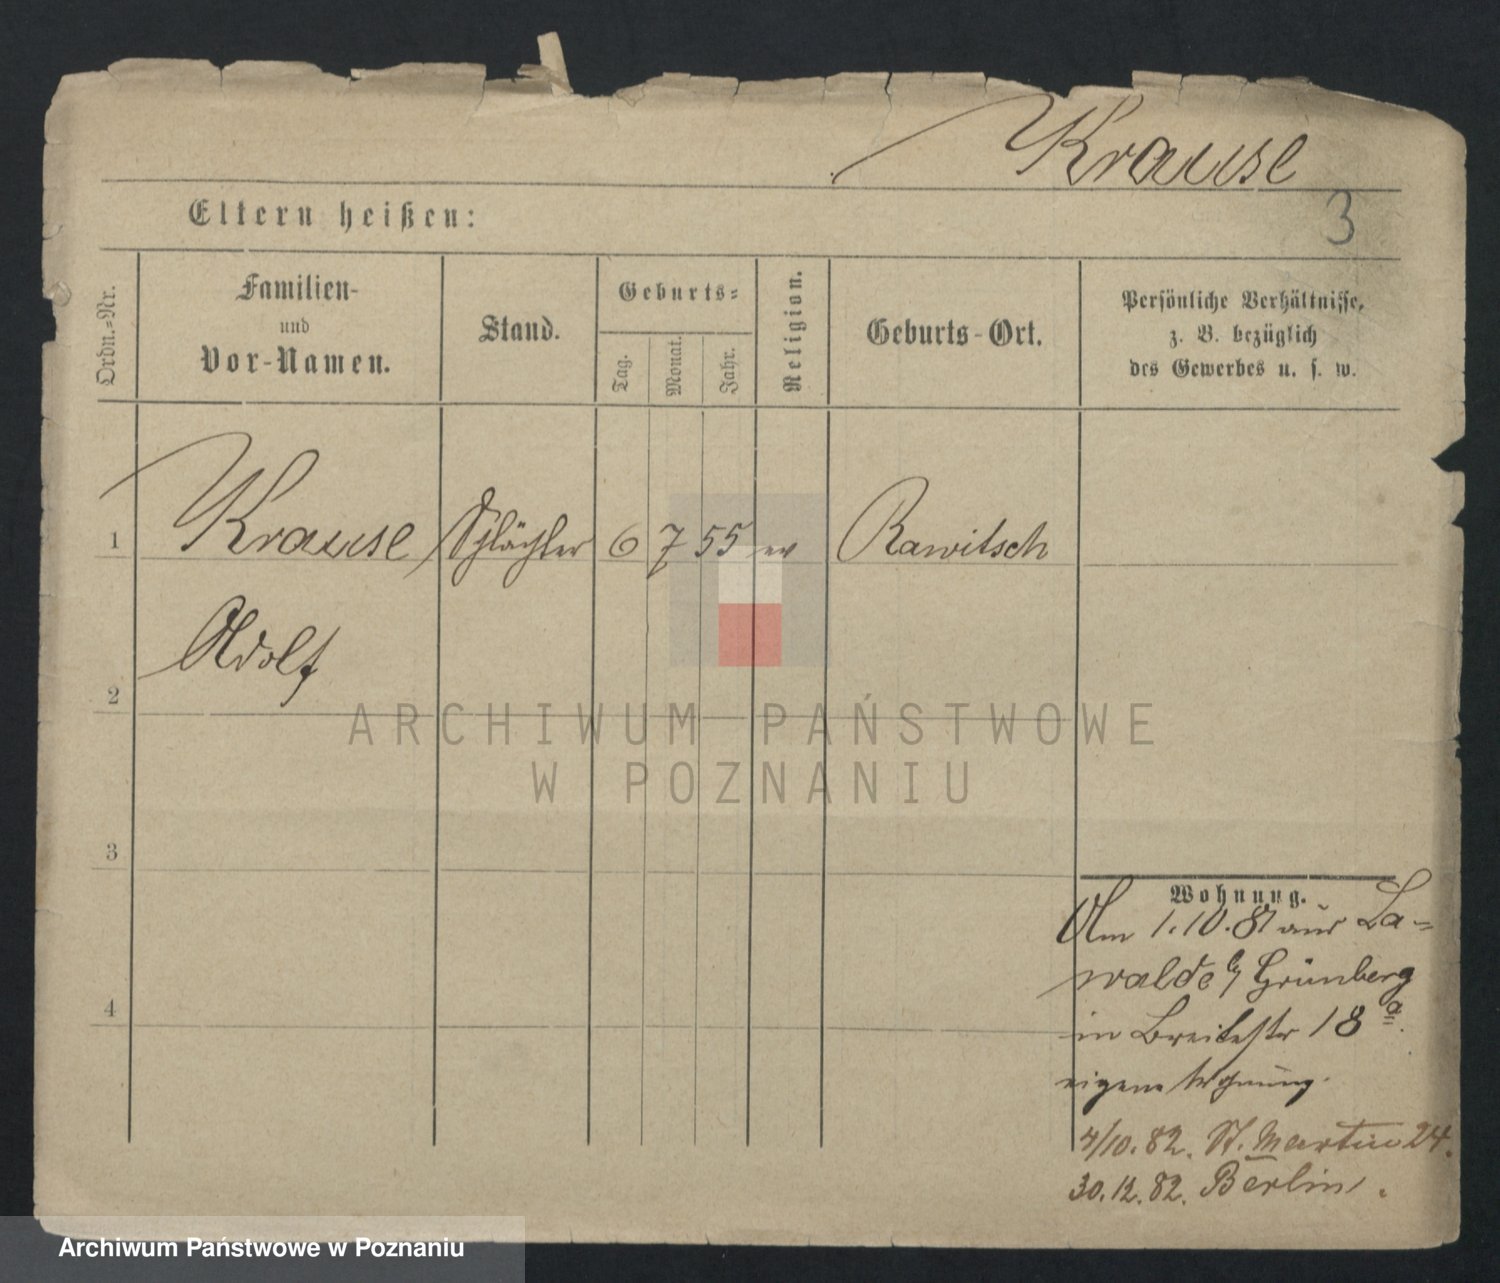 Krause
3
Eltern heißen:
Ordn.-Nr.
Familien-
und
Vor-Namen.
Stand.
Geburts-
Tag.
Monat.
Jahr.
Religion.
Geburts-Ort.
Persönliche Verhältnisse,
z. B. bezüglich
des Gewerbes u. s. w.
1 Krause Schlächter 6 7 55 ev Rawitsch
Adolf
2
3
4
Wohnung.
Am 1.10.81 aus La-
walde b/ Grünberg
in Breitestr 18 a.
eigene Wohnung.
4/10.82. St. Martin 24.
30.12.82. Berlin.
ARCHIWUM PAŃSTWOWE
W POZNANIU
Archiwum Państwowe w Poznaniu